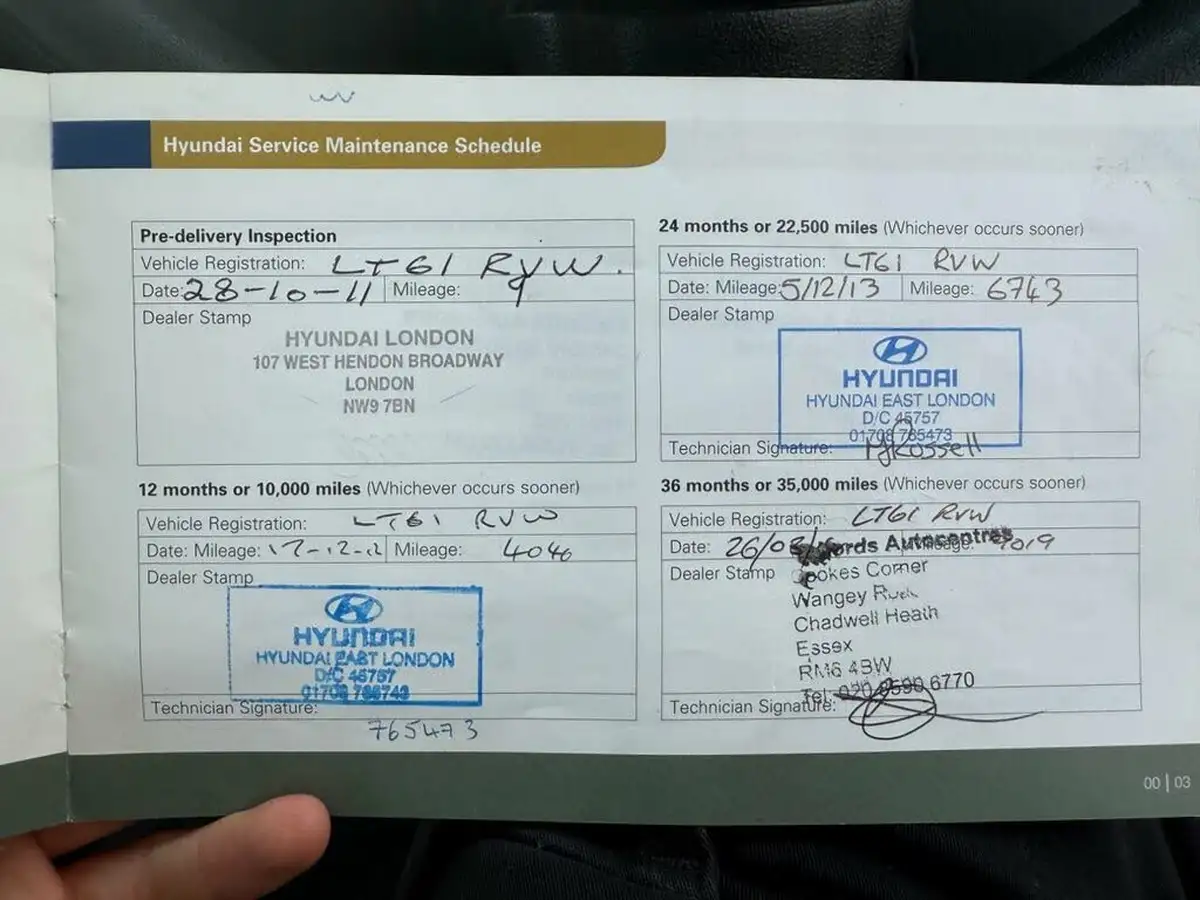 Hyundai Service Maintenance Schedule
Pre-delivery Inspection
Vehicle Registration: LT61 RVW.
Date: 28-10-11 Mileage: 9
Dealer Stamp
HYUNDAI LONDON
107 WEST HENDON BROADWAY
LONDON
NW9 7BN
12 months or 10,000 miles (Whichever occurs sooner)
Vehicle Registration: LT61 RVW
Date: Mileage: 17-12-12 Mileage: 4040
Dealer Stamp
HYUNDAI
HYUNDAI EAST LONDON
D/C 45757
Technician Signature:
765473
24 months or 22,500 miles (Whichever occurs sooner)
Vehicle Registration: LT61 RVW
Date: Mileage: 5/12/13 Mileage: 6743
Dealer Stamp
HYUNDAI
HYUNDAI EAST LONDON
D/C 45757
01708 765473
Technician Signature: MJRussell
36 months or 35,000 miles (Whichever occurs sooner)
Vehicle Registration: LT61 RVW
Date: 26/03/ Autocentres Mileage: 9019
Dealer Stamp
Corner
Wangey
Chadwell Heath
Essex
RM6 4BW
Tel: 020 8590 6770
Technician Signature:
00 | 03